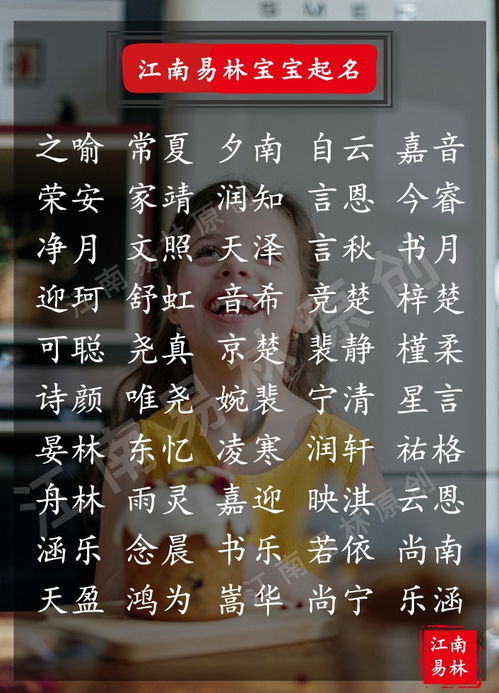 SMEG
江南易林宝宝起名
之喻 常夏 夕南 自云 嘉音
荣安 家靖 润知 言恩 今睿
净月 文照 天泽 言秋 书月
迎珂 舒虹 音希 竞楚 梓楚
可聪 尧真 京楚 裴静 槿柔
诗颜 唯尧 婉裴 宁清 星言
晏林 东忆 凌寒 润轩 祐格
舟林 雨灵 嘉迎 映淇 云恩
涵乐 念晨 书乐 若依 尚南
天盈 鸿为 嵩华 尚宁 乐涵
江南易林原创
江南易林原创
江南易林原创
江南
易林